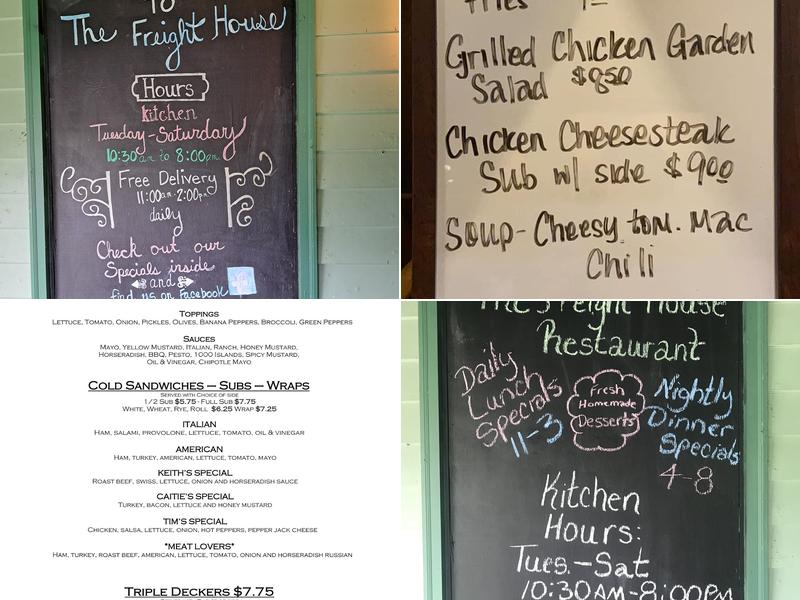 To
The Freight House
Hours
kitchen
Tuesday-Saturday
10:30am to 8:00pm
Free Delivery
11:00am-2:00pm
daily
Check out our
Specials inside
and
find us on Facebook
Fries
Grilled Chicken Garden
Salad $8.50
Chicken Cheesesteak
Sub w/ side $9.00
Soup- Cheesy tom. Mac
Chili
TOPPINGS
LETTUCE, TOMATO, ONION, PICKLES, OLIVES, BANANA PEPPERS, BROCCOLI, GREEN PEPPERS
SAUCES
MAYO, YELLOW MUSTARD, ITALIAN, RANCH, HONEY MUSTARD,
HORSERADISH, BBQ, PESTO, 1000 ISLANDS, SPICY MUSTARD,
OIL & VINEGAR, CHIPOTLE MAYO
COLD SANDWICHES – SUBS – WRAPS
SERVED WITH CHOICE OF SIDE
1/2 SUB $5.75 - FULL SUB $7.75
WHITE, WHEAT, RYE, ROLL $6.25 WRAP $7.25
ITALIAN
HAM, SALAMI, PROVOLONE, LETTUCE, TOMATO, OIL & VINEGAR
AMERICAN
HAM, TURKEY, AMERICAN, LETTUCE, TOMATO, MAYO
KEITH'S SPECIAL
ROAST BEEF, SWISS, LETTUCE, ONION AND HORSERADISH SAUCE
CAITIE'S SPECIAL
TURKEY, BACON, LETTUCE AND HONEY MUSTARD
TIM'S SPECIAL
CHICKEN, SALSA, LETTUCE, ONION, HOT PEPPERS, PEPPER JACK CHEESE
*MEAT LOVERS*
HAM, TURKEY, ROAST BEEF, AMERICAN, LETTUCE, TOMATO, ONION AND HORSERADISH RUSSIAN
TRIPLE DECKERS $7.75
The Freight House
Restaurant
Daily
Lunch
Specials
11-3
Fresh
Homemade
Desserts
Nightly
Dinner
Specials
4-8
Kitchen
Hours:
Tues.-Sat
10:30AM-8:00PM